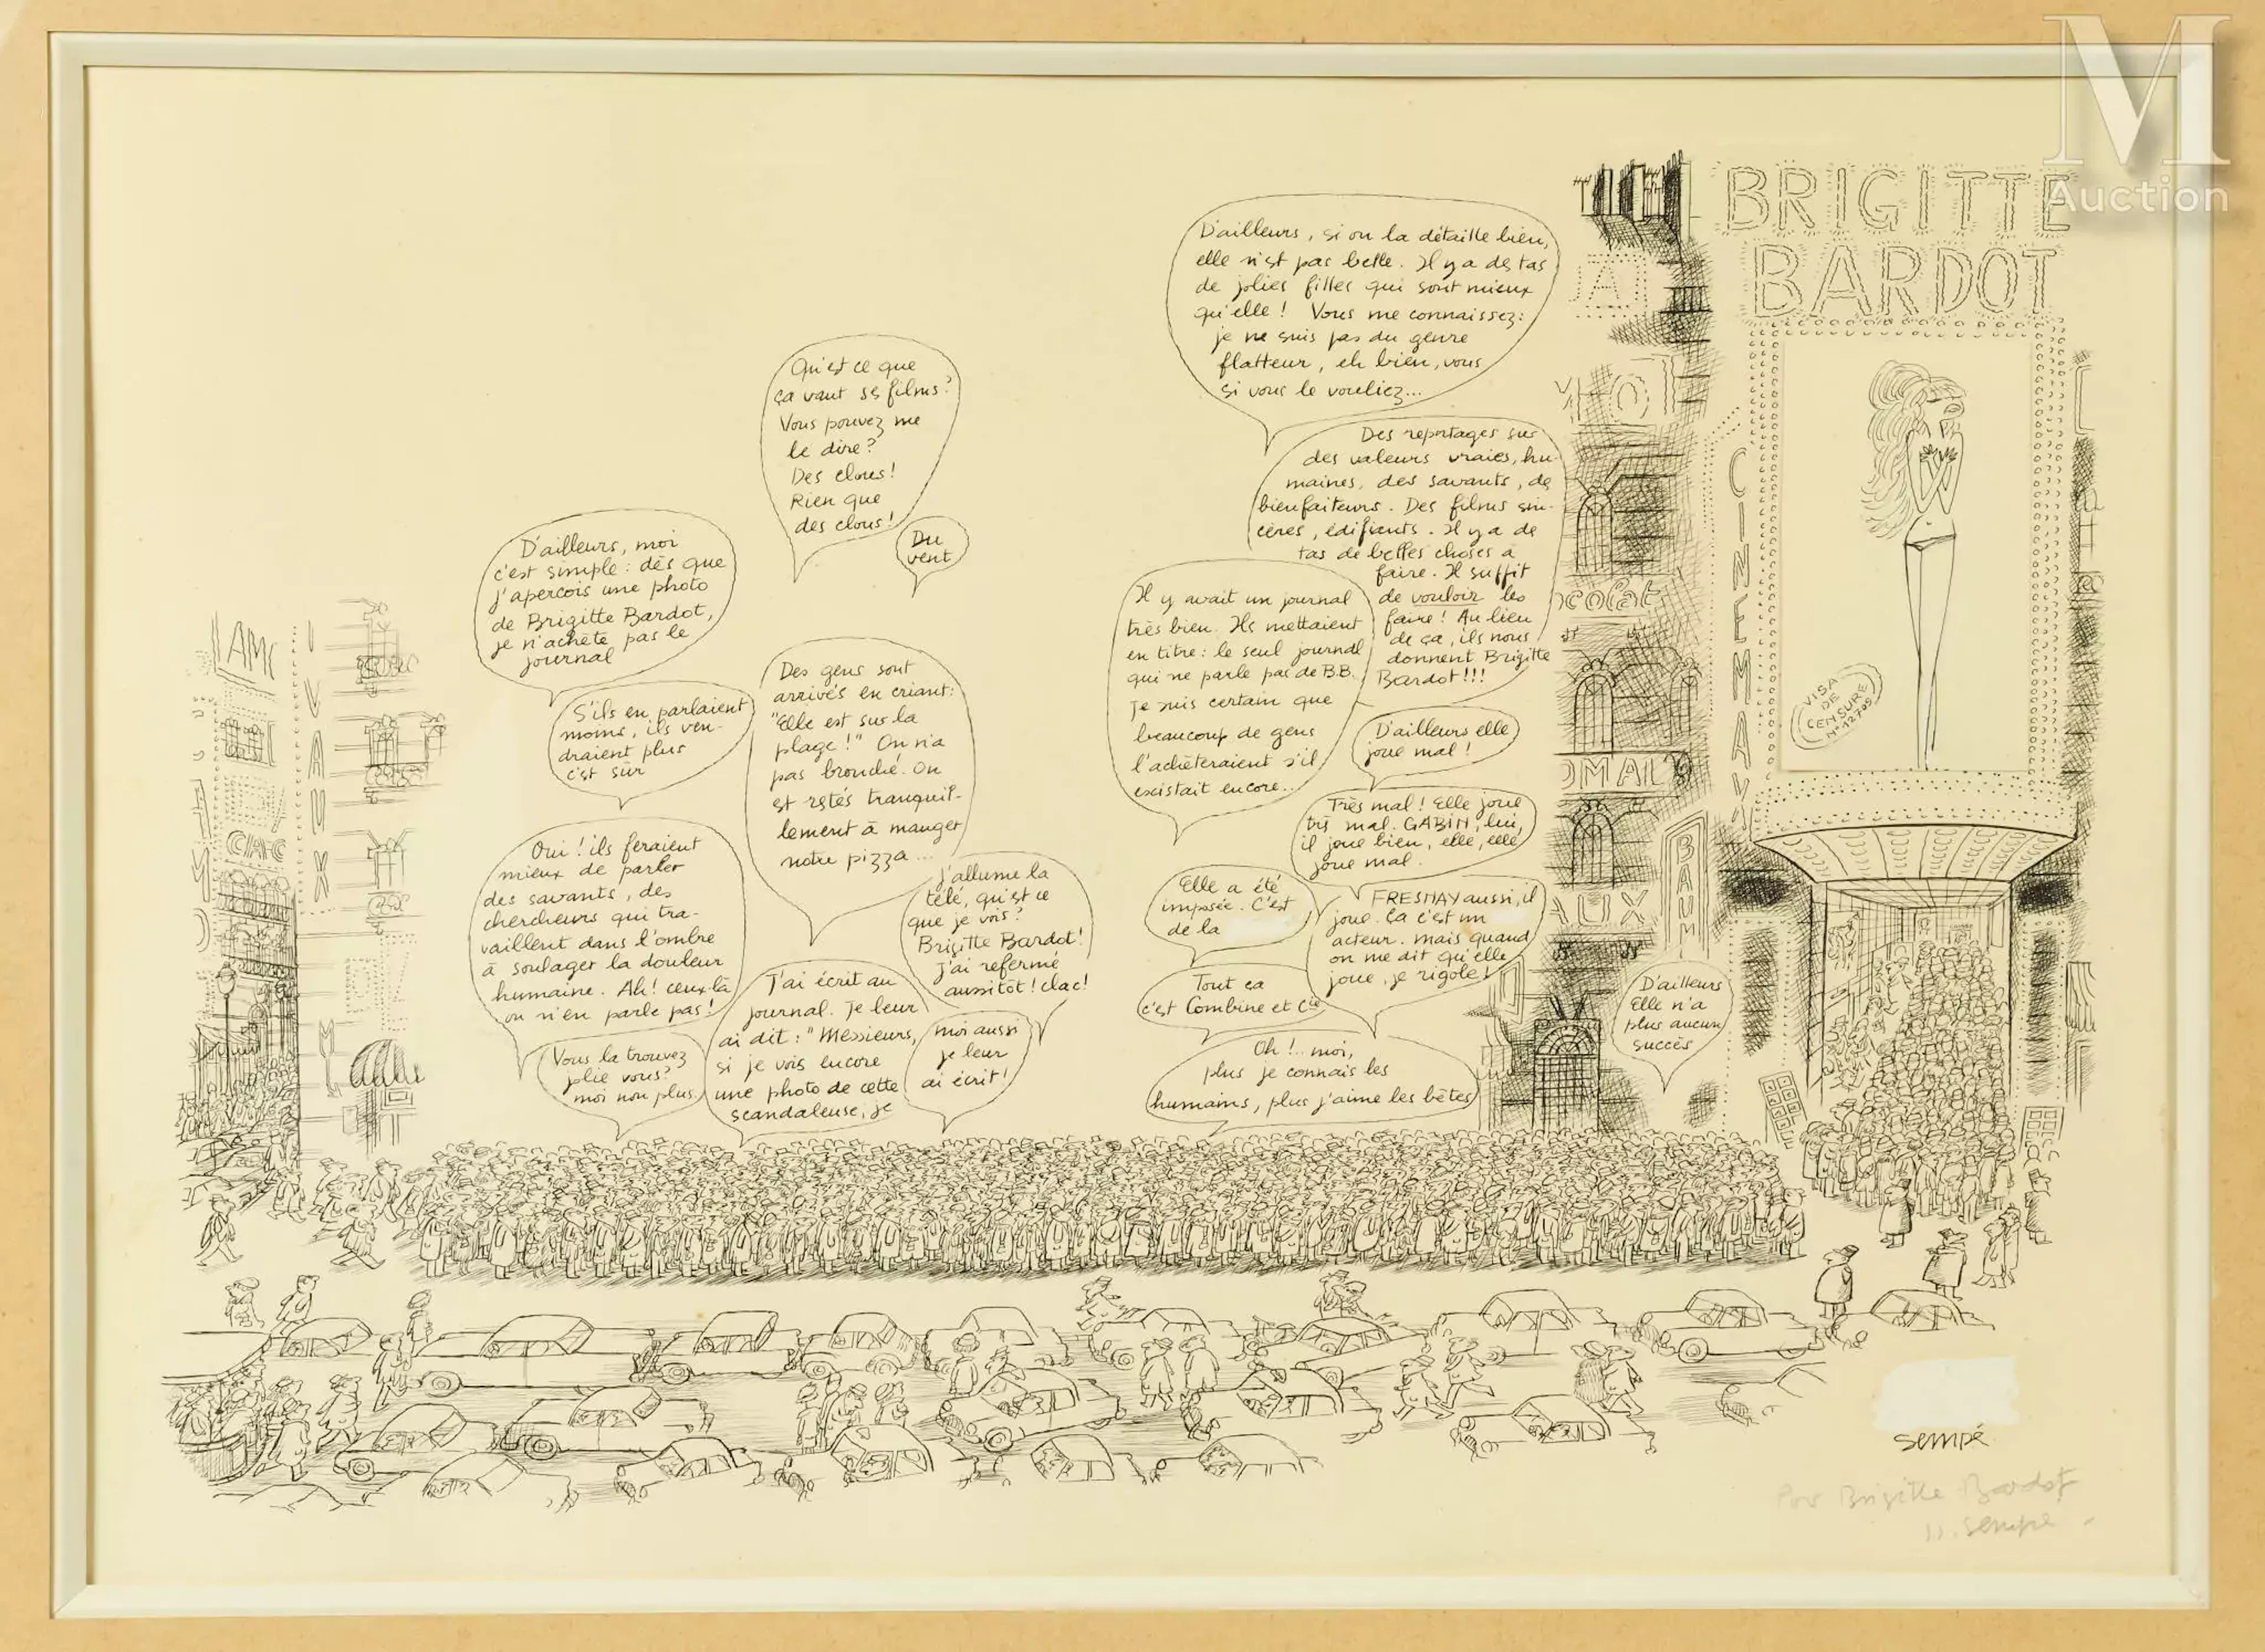 M
Auction
BRIGITTE
BARDOT
D'ailleurs, si on la détaille bien,
elle n'est pas belle. Il y a des tas
de jolies filles qui sont mieux
qu'elle ! Vous me connaissez :
je ne suis pas du genre
flatteur, eh bien, vous
si vous le vouliez...
Qu'est ce que
ça vaut ses films ?
Vous pouvez me
le dire ?
Des clous !
Rien que
des clous !
Du
vent
D'ailleurs, moi
c'est simple : dès que
j'aperçois une photo
de Brigitte Bardot,
je n'achète pas le
journal
S'ils en parlaient
moins, ils ven-
draient plus
c'est sûr
Oui ! ils feraient
mieux de parler
des savants, des
chercheurs qui tra-
vaillent dans l'ombre
à soulager la douleur
humaine. Ah ! ceux-là
on n'en parle pas !
Vous la trouvez
jolie vous ?
moi non plus
Des gens sont
arrivés en criant :
"Elle est sur la
plage !" On n'a
pas bronché. On
est restés tranquil-
lement à manger
notre pizza...
J'ai écrit au
journal. Je leur
ai dit : "Messieurs,
si je vois encore
une photo de cette
scandaleuse, je
J'allume la
télé, qu'est ce
que je vois ?
Brigitte Bardot !
j'ai refermé
aussitôt ! clac !
moi aussi
je leur
ai écrit !
Des reportages sur
des valeurs vraies, hu-
maines, des savants, des
bienfaiteurs. Des films sin-
cères, édifiants. Il y a de
tas de belles choses à
faire. Il suffit
de vouloir les
faire ! Au lieu
de ça, ils nous
donnent Brigitte
Bardot !!!
Il y avait un journal
très bien. Ils mettaient
en titre : le seul journal
qui ne parle pas de B.B.
Je suis certain que
beaucoup de gens
l'achèteraient s'il
existait encore...
D'ailleurs elle
joue mal !
Très mal ! Elle joue
très mal. GABIN, lui,
il joue bien, elle, elle
joue mal.
FRESNAY aussi, il
joue. Ca c'est un
acteur. Mais quand
on me dit qu'elle
joue, je rigole !
Elle a été
imposée. C'est
de la
Tout ça
c'est Combine et Cie
Oh !.. moi,
plus je connais les
humains, plus j'aime les bêtes
D'ailleurs
Elle n'a
plus aucun
succès
CINEMA
VISA
DE
CENSURE
N° 12709
colat
OMAL
AUX
BAUM
VAUX
sempé
Pour Brigitte Bardot
J.J. Sempé